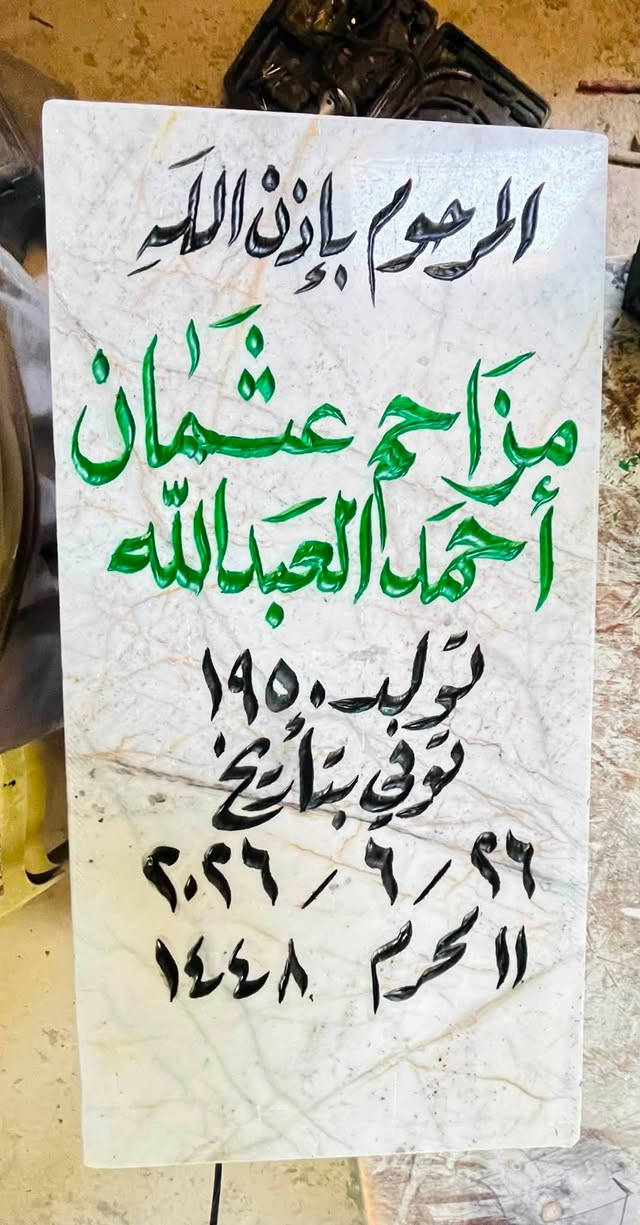 المرحوم بإذن اللَهِ
مزَاحم عثمان
أحمَد العبَدالله
تولد ١٩٥٠
توفي بتأريخ
٢٦ / ٦ / ٢٠٢٦
١١ محرم ١٤٤٨